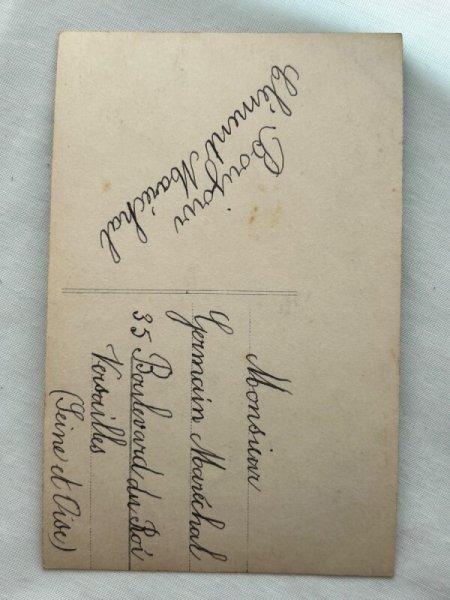 Bonjour
Clément Maréchal
Monsieur
Germain Maréchal
35 Boulevard du Roi
Versailles
(Seine et Oise)